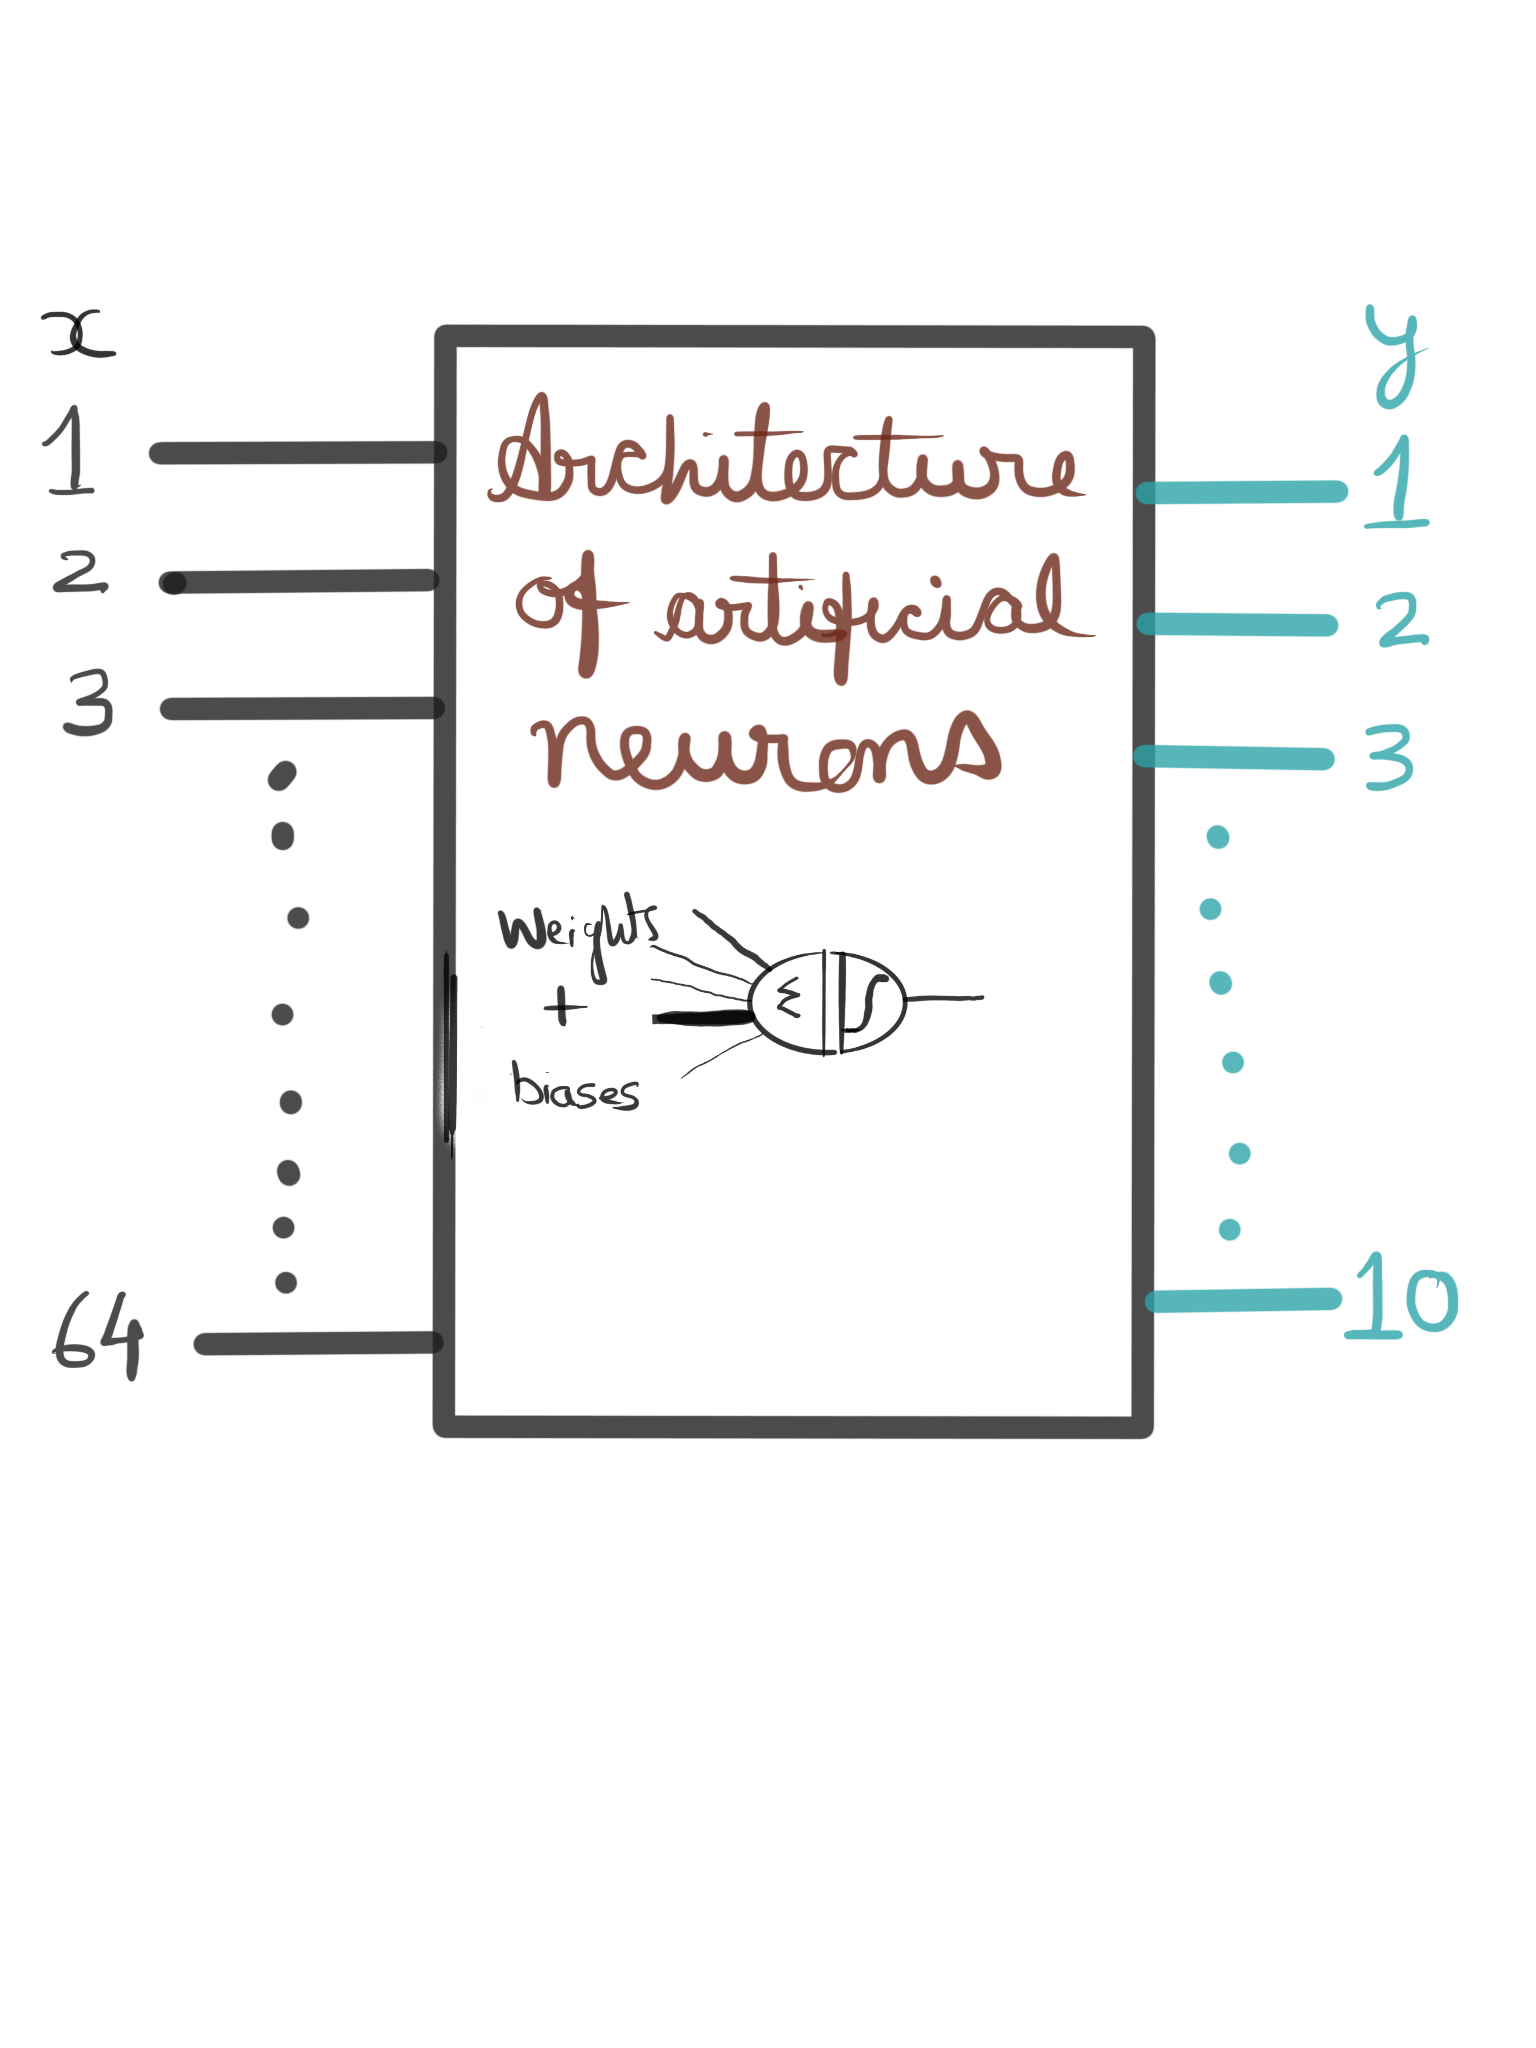 x
1
2
3
64
Architecture
of artificial
neurons
Weights
+
biases
Σ
y
1
2
3
10